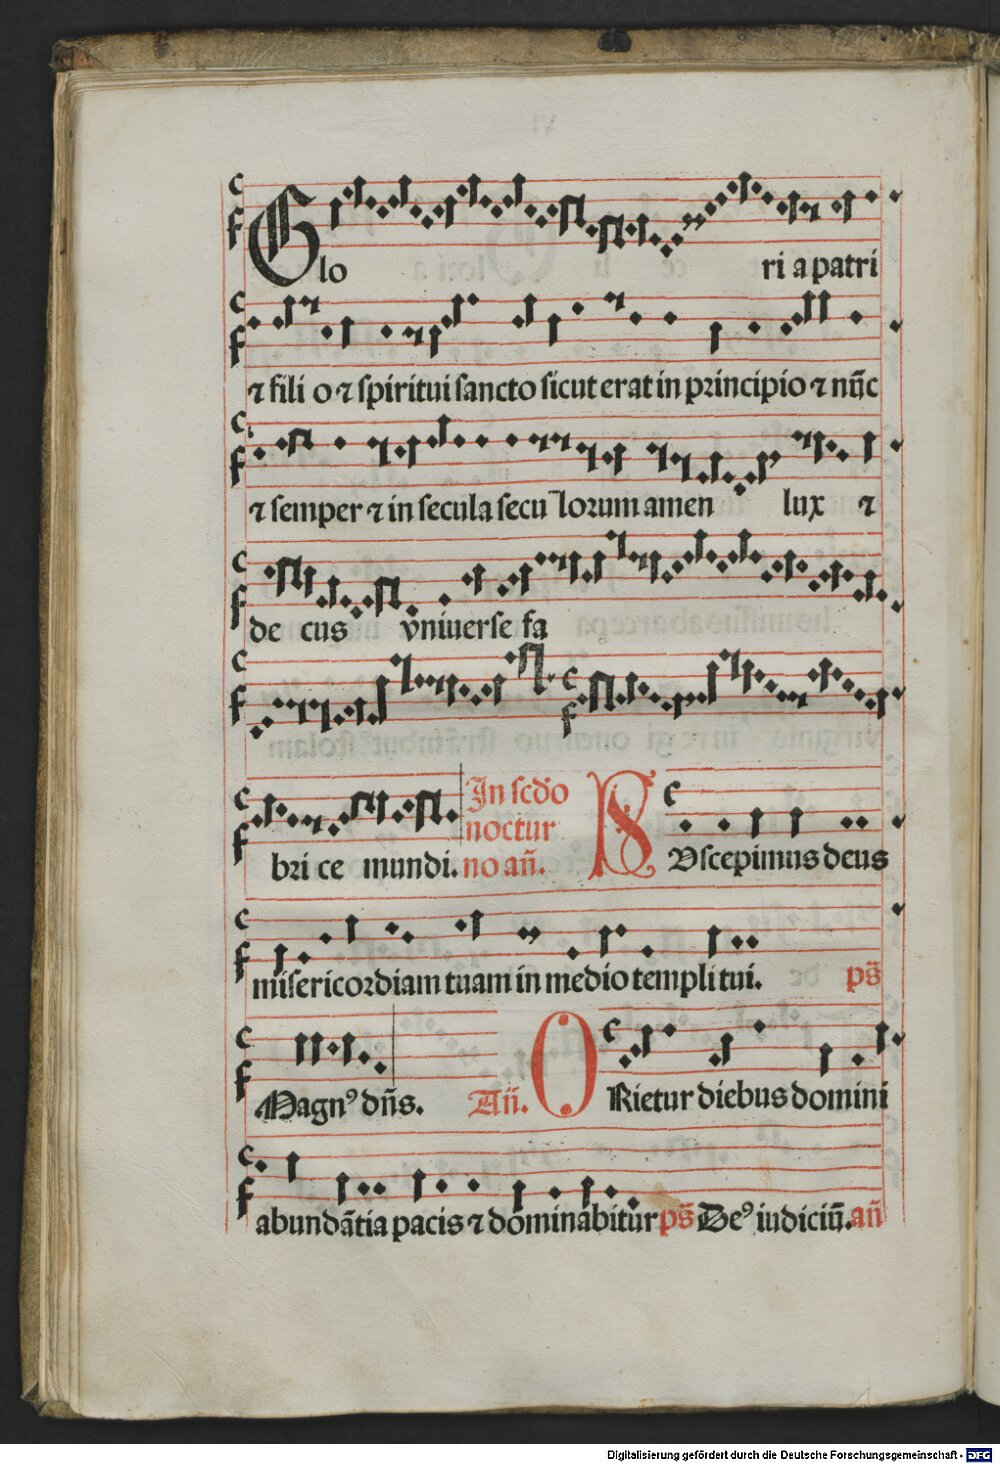 Glo ri a patri
⁊ fili o ⁊ ſpiritui ſancto ſicut erat in principio ⁊ nūc
⁊ ſemper ⁊ in ſecula ſecu lorum amen lux ⁊
de cus vniuerſe fa
bri ce mundi.
In ſcd̄o
noctur
no an̄.
Vſcepimus deus
miſericordiam tuam in medio templi tui. ps̄
Magnꝰ dn̄s. An̄. ORietur diebus domini
abundātia pacis ⁊ dominabitur ps̄ Deꝰ iudiciū. an̄
Digitalisierung gefördert durch die Deutsche Forschungsgemeinschaft - DFG